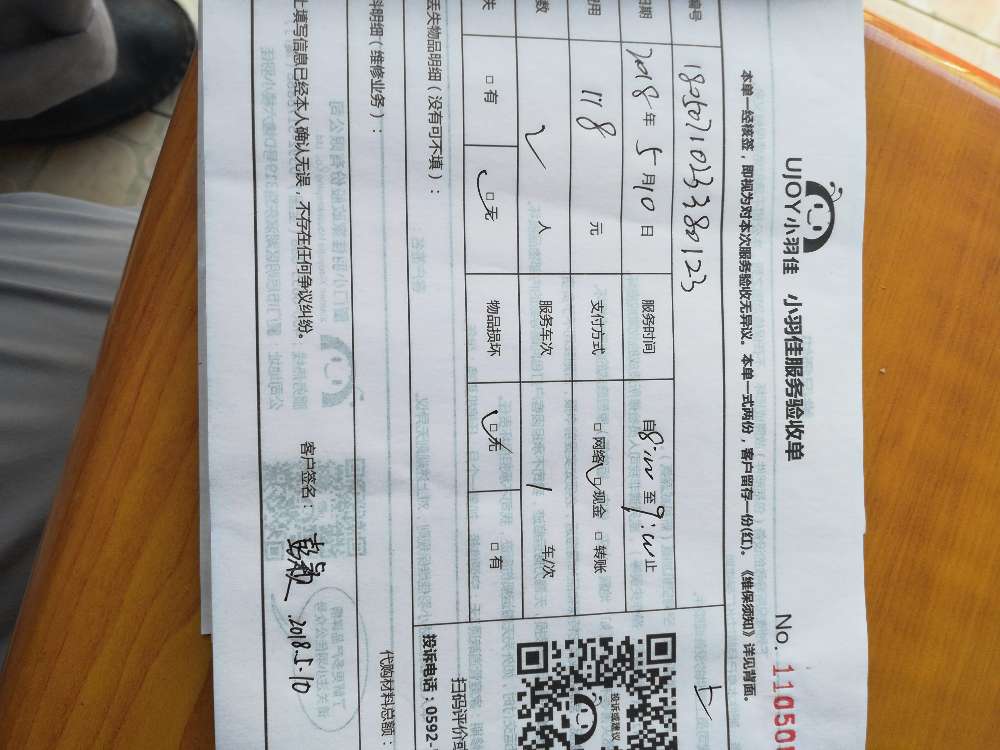 UJOY小羽佳 小羽佳服务验收单
No. 11050
本单一经核签，即视为对本次服务验收无异议。本单一式两份，客户留存一份(红)。《维保须知》详见背面。
编号 1805071023380123
日期 2018年5月10日 服务时间 自8:00至9:00止
费用 118 元 支付方式 □网络 □现金 □转账
数 2 人 服务车次 1 车/次
失 □有 □无 物品损坏 □无 □有
丢失物品明细（没有可不填）：
投诉建议
扫码评价或
投诉电话：0592-
料明细（维修业务）：
代购材料总额：
上填写信息已经本人确认无误，不存在任何争议纠纷。
客户签名：
2018.5.10